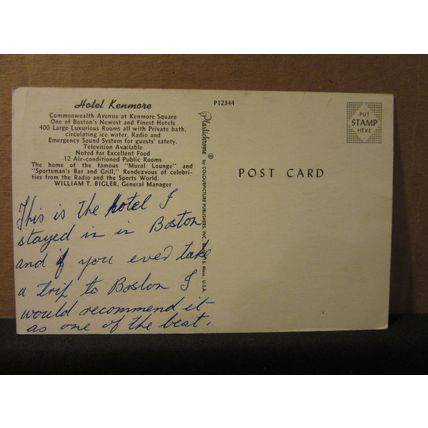 Hotel Kenmore
Commonwealth Avenue at Kenmore Square
One of Boston's Newest and Finest Hotels
400 Large Luxurious Rooms all with Private bath,
circulating ice water, Radio and
Emergency Sound System for guests' safety.
Television Available
Noted for Excellent Food
12 Air-conditioned Public Rooms
The home of the famous "Mural Lounge" and
"Sportsman's Bar and Grill," Rendezvous of celebri-
ties from the Radio and the Sports World.
WILLIAM T. BIGLER, General Manager
This is the hotel I
stayed in in Boston
and if you ever take
a trip to Boston I
would recommend it
as one of the best.
P12344
Plastichrome ®
by COLOURPICTURE PUBLISHERS, INC. MASS., U.S.A.
POST CARD
PUT
STAMP
HERE